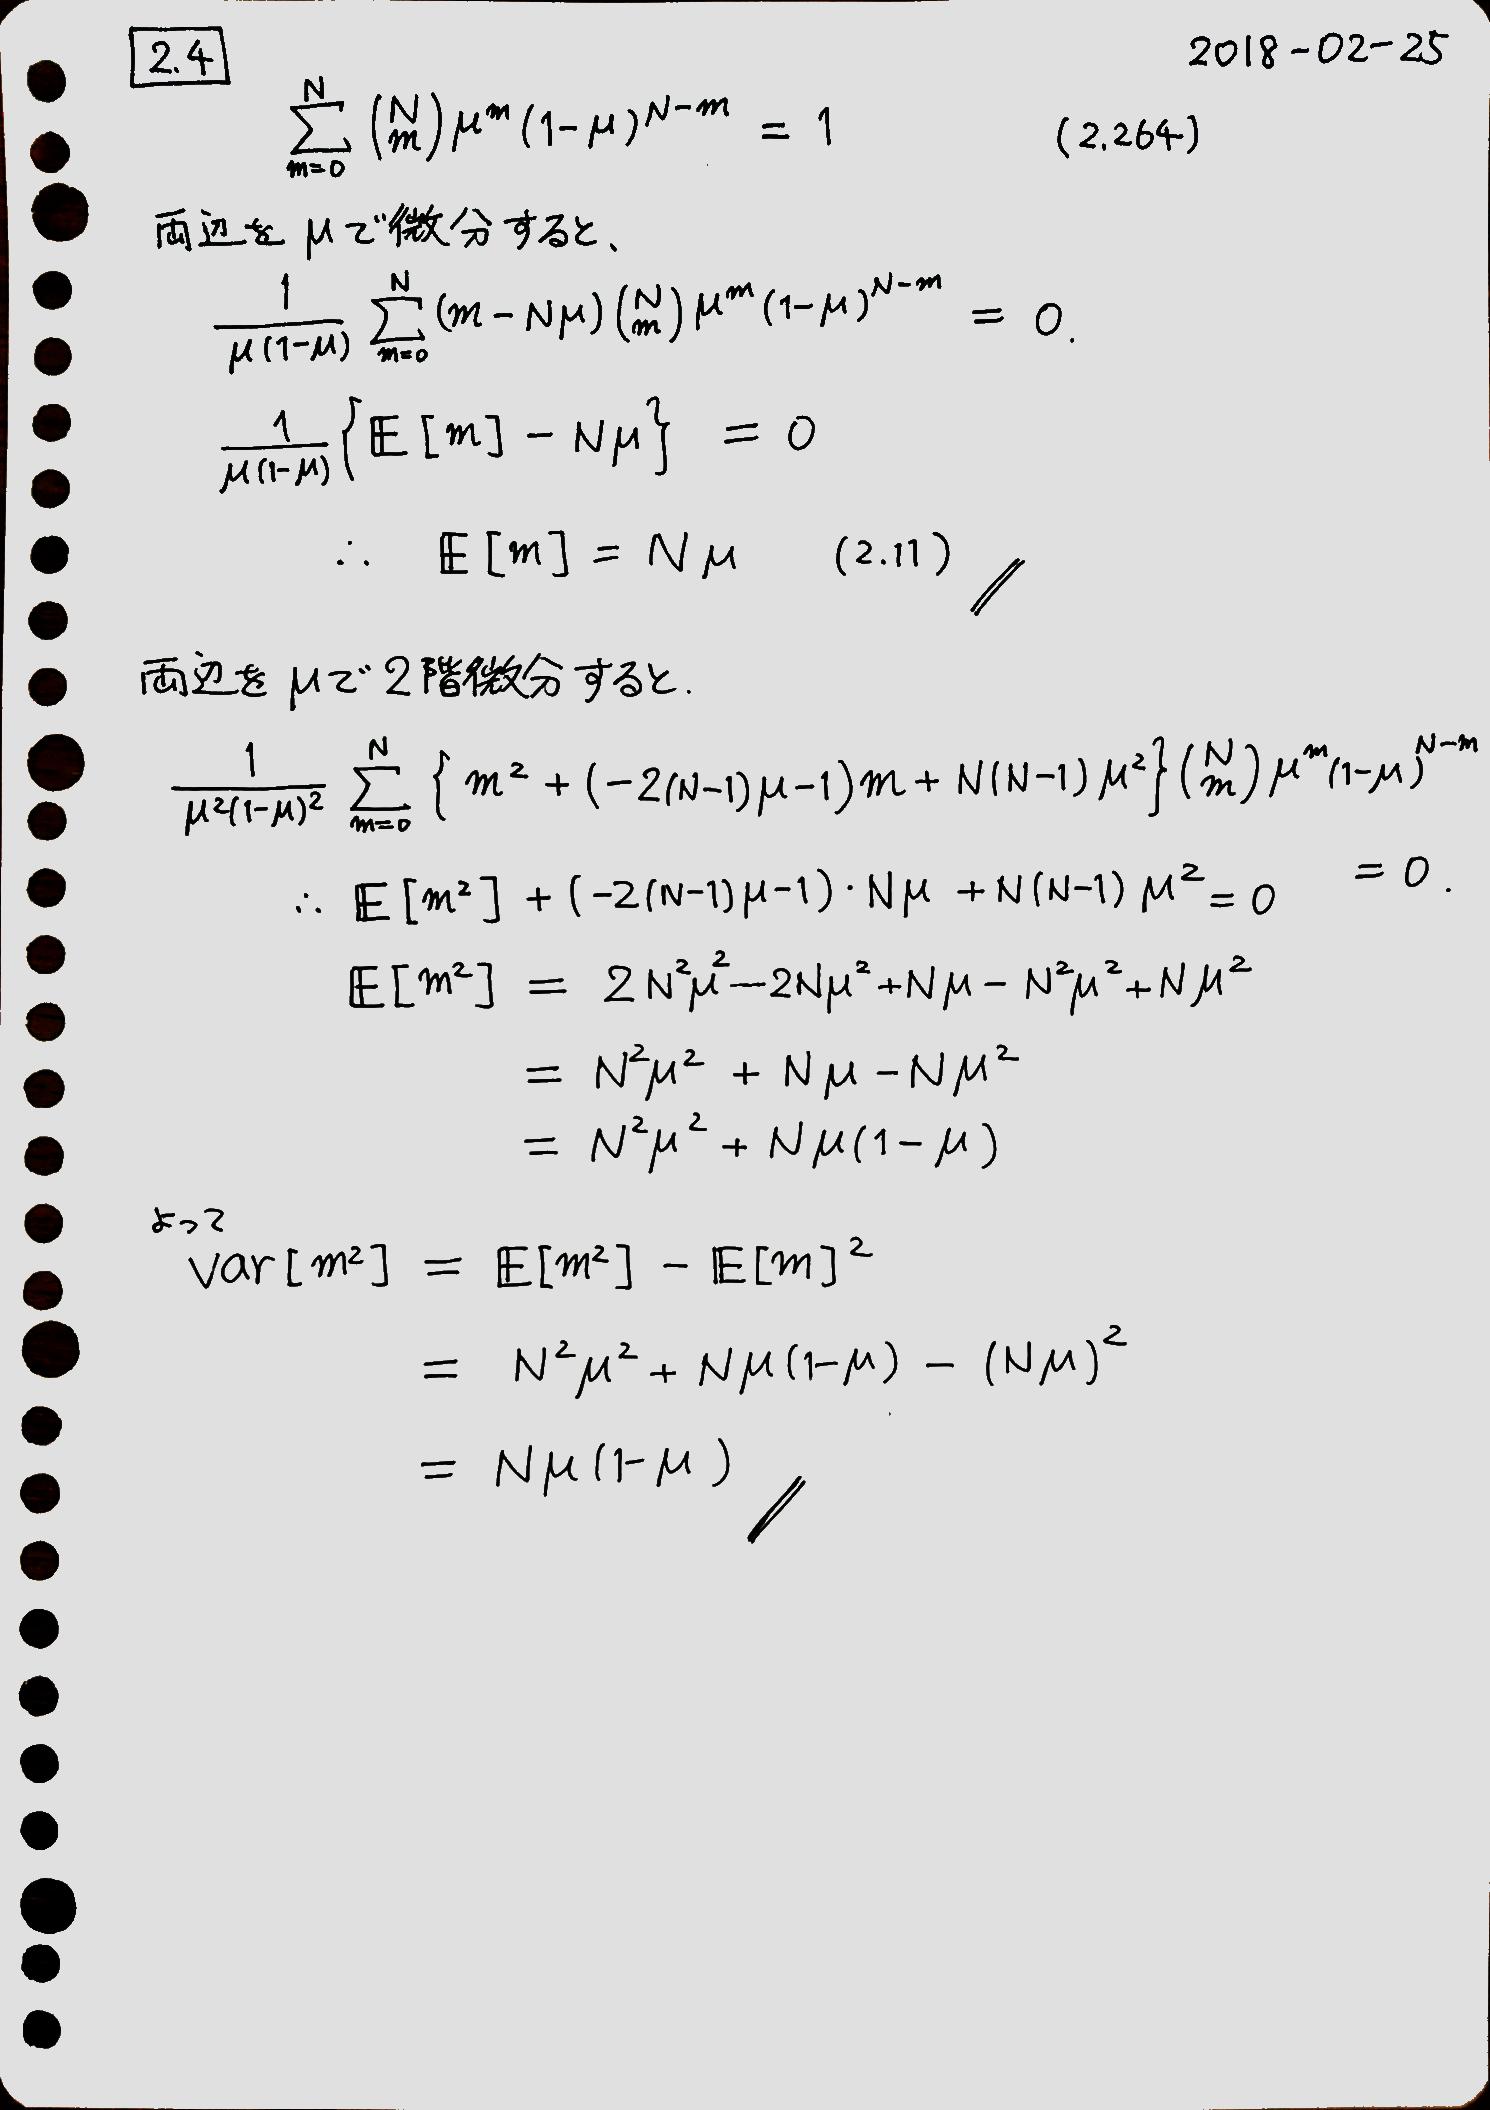 2.4 2018-02-25
\sum_{m=0}^{N} \binom{N}{m} μ^m (1-μ)^{N-m} = 1 (2.264)
両辺を μで微分すると、
\frac{1}{μ(1-μ)} \sum_{m=0}^{N} (m-Nμ) \binom{N}{m} μ^m (1-μ)^{N-m} = 0.
\frac{1}{μ(1-μ)} \{ 𝔼[m] - Nμ \} = 0
∴ 𝔼[m] = Nμ (2.11) //
両辺を μで2階微分すると.
\frac{1}{μ^2(1-μ)^2} \sum_{m=0}^{N} \{ m^2 + (-2(N-1)μ-1)m + N(N-1)μ^2 \} \binom{N}{m} μ^m (1-μ)^{N-m}
= 0.
∴ 𝔼[m^2] + (-2(N-1)μ-1)・Nμ + N(N-1)μ^2 = 0
𝔼[m^2] = 2N^2μ^2 - 2Nμ^2 + Nμ - N^2μ^2 + Nμ^2
= N^2μ^2 + Nμ - Nμ^2
= N^2μ^2 + Nμ(1-μ)
よって
var[m^2] = 𝔼[m^2] - 𝔼[m]^2
= N^2μ^2 + Nμ(1-μ) - (Nμ)^2
= Nμ(1-μ) //